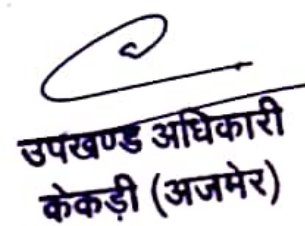 उपखण्ड अधिकारी
केकड़ी (अजमेर)